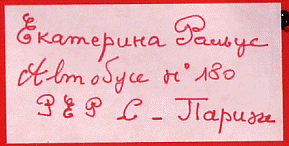 Екатерина
Автобус n° 180
РЕР С - Париж